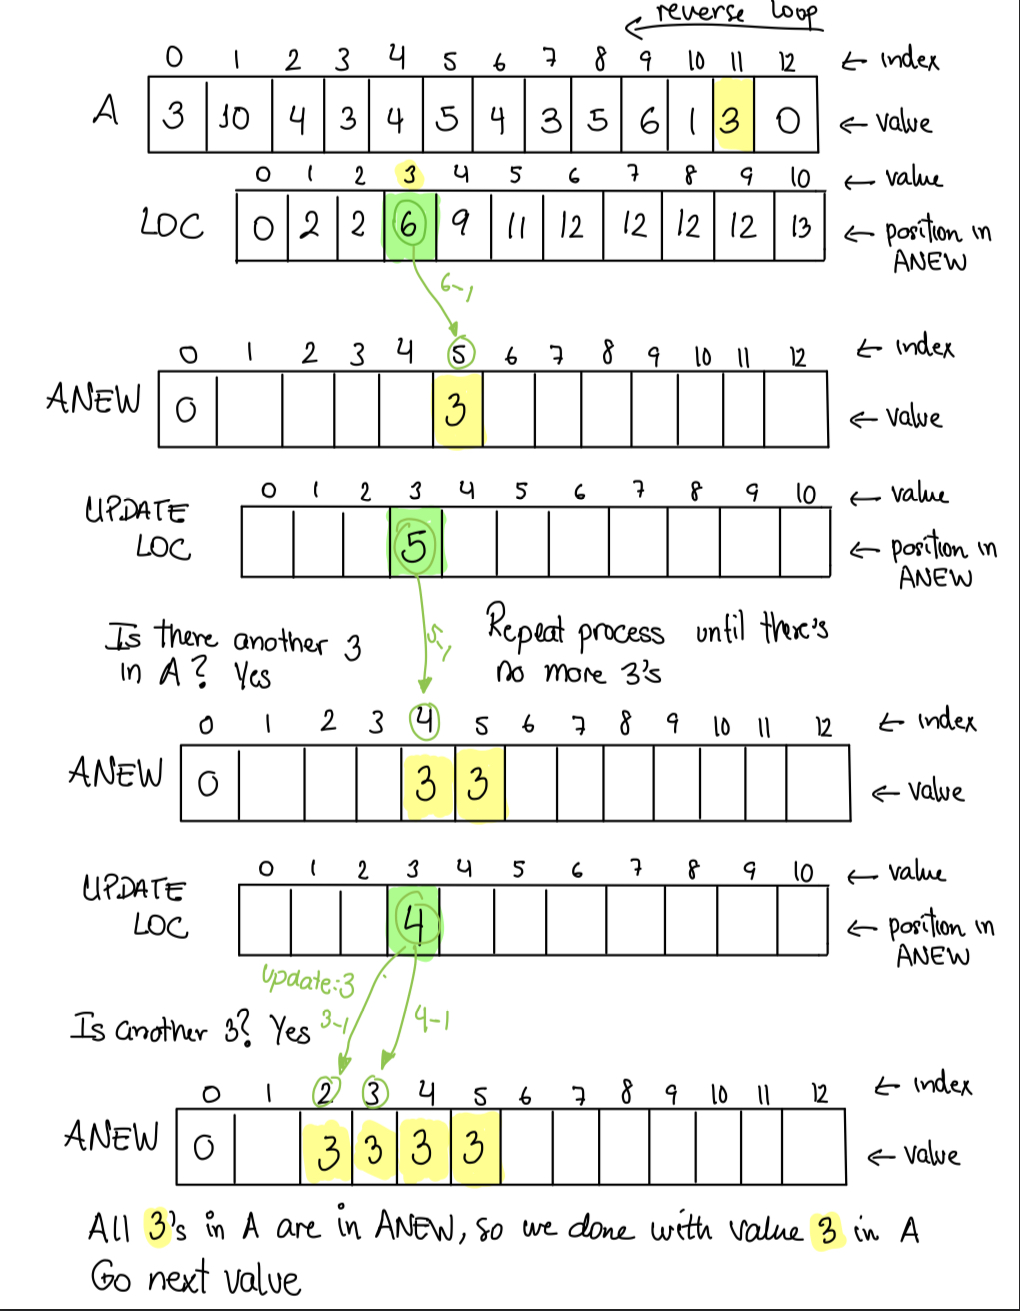 ← reverse loop
0 1 2 3 4 5 6 7 8 9 10 11 12 ← index
A 3 10 4 3 4 5 4 3 5 6 1 3 0 ← value
0 1 2 3 4 5 6 7 8 9 10 ← value
LOC 0 2 2 6 9 11 12 12 12 12 13 ← position in
ANEW
6-1
0 1 2 3 4 5 6 7 8 9 10 11 12 ← index
ANEW 0 3 ← value
0 1 2 3 4 5 6 7 8 9 10 ← value
UPDATE
LOC 5 ← position in
ANEW
Is there another 3
in A? Yes
5-1
Repeat process until there's
no more 3's
0 1 2 3 4 5 6 7 8 9 10 11 12 ← index
ANEW 0 3 3 ← value
0 1 2 3 4 5 6 7 8 9 10 ← value
UPDATE
LOC 4 ← position in
ANEW
update:3
Is another 3? Yes 3-1 4-1
0 1 2 3 4 5 6 7 8 9 10 11 12 ← index
ANEW 0 3 3 3 3 ← value
All 3's in A are in ANEW, so we done with value 3 in A
Go next value